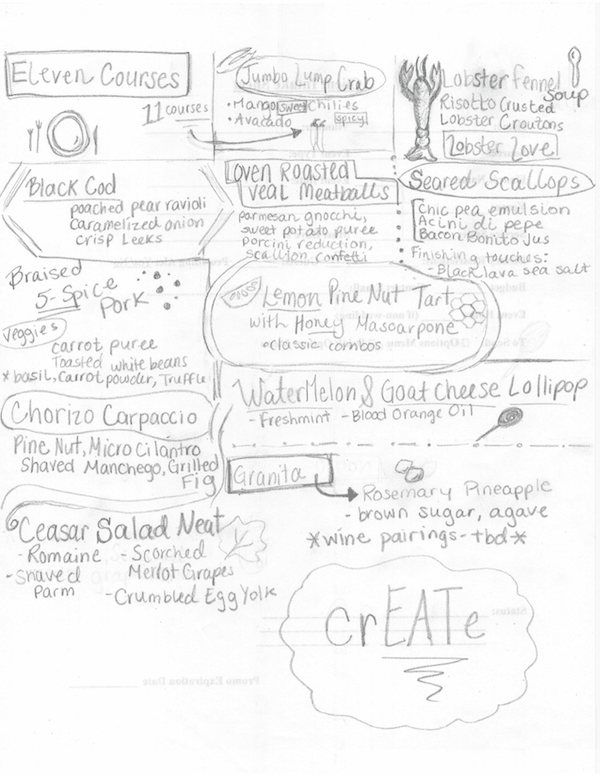 Eleven Courses
11 courses
Jumbo Lump Crab
• Mango sweet Chilies
• Avacado spicy
Lobster Fennel
Soup
Risotto Crusted
Lobster Croutons
Lobster Love
Black Cod
poached pear ravioli
Caramelized onion
crisp leeks
Oven Roasted
Veal Meatballs
parmesan gnocchi,
sweet potato puree
porcini reduction,
scallion confetti
Seared Scallops
Chic pea emulsion
Acini di pepe
Bacon Bonito Jus
• Finishing touches:
- Black lava sea salt
Braised
5-Spice
Pork
Veggies
carrot puree
Toasted white beans
* basil, Carrot powder, Truffle
Lemon Pine Nut Tart
with Honey Mascarpone
• classic combos
Chorizo Carpaccio
Pine Nut, Micro Cilantro
Shaved Manchego, Grilled
Fig
WaterMelon & Goat Cheese Lollipop
- Freshmint - Blood Orange Oil
Granita
Rosemary Pineapple
- brown sugar, agave
*wine pairings - tbd*
Ceasar Salad Neat
- Romaine - Scorched
- Shaved Merlot Grapes
Parm - Crumbled Egg Yolk
crEATe
Promo Expiration Date